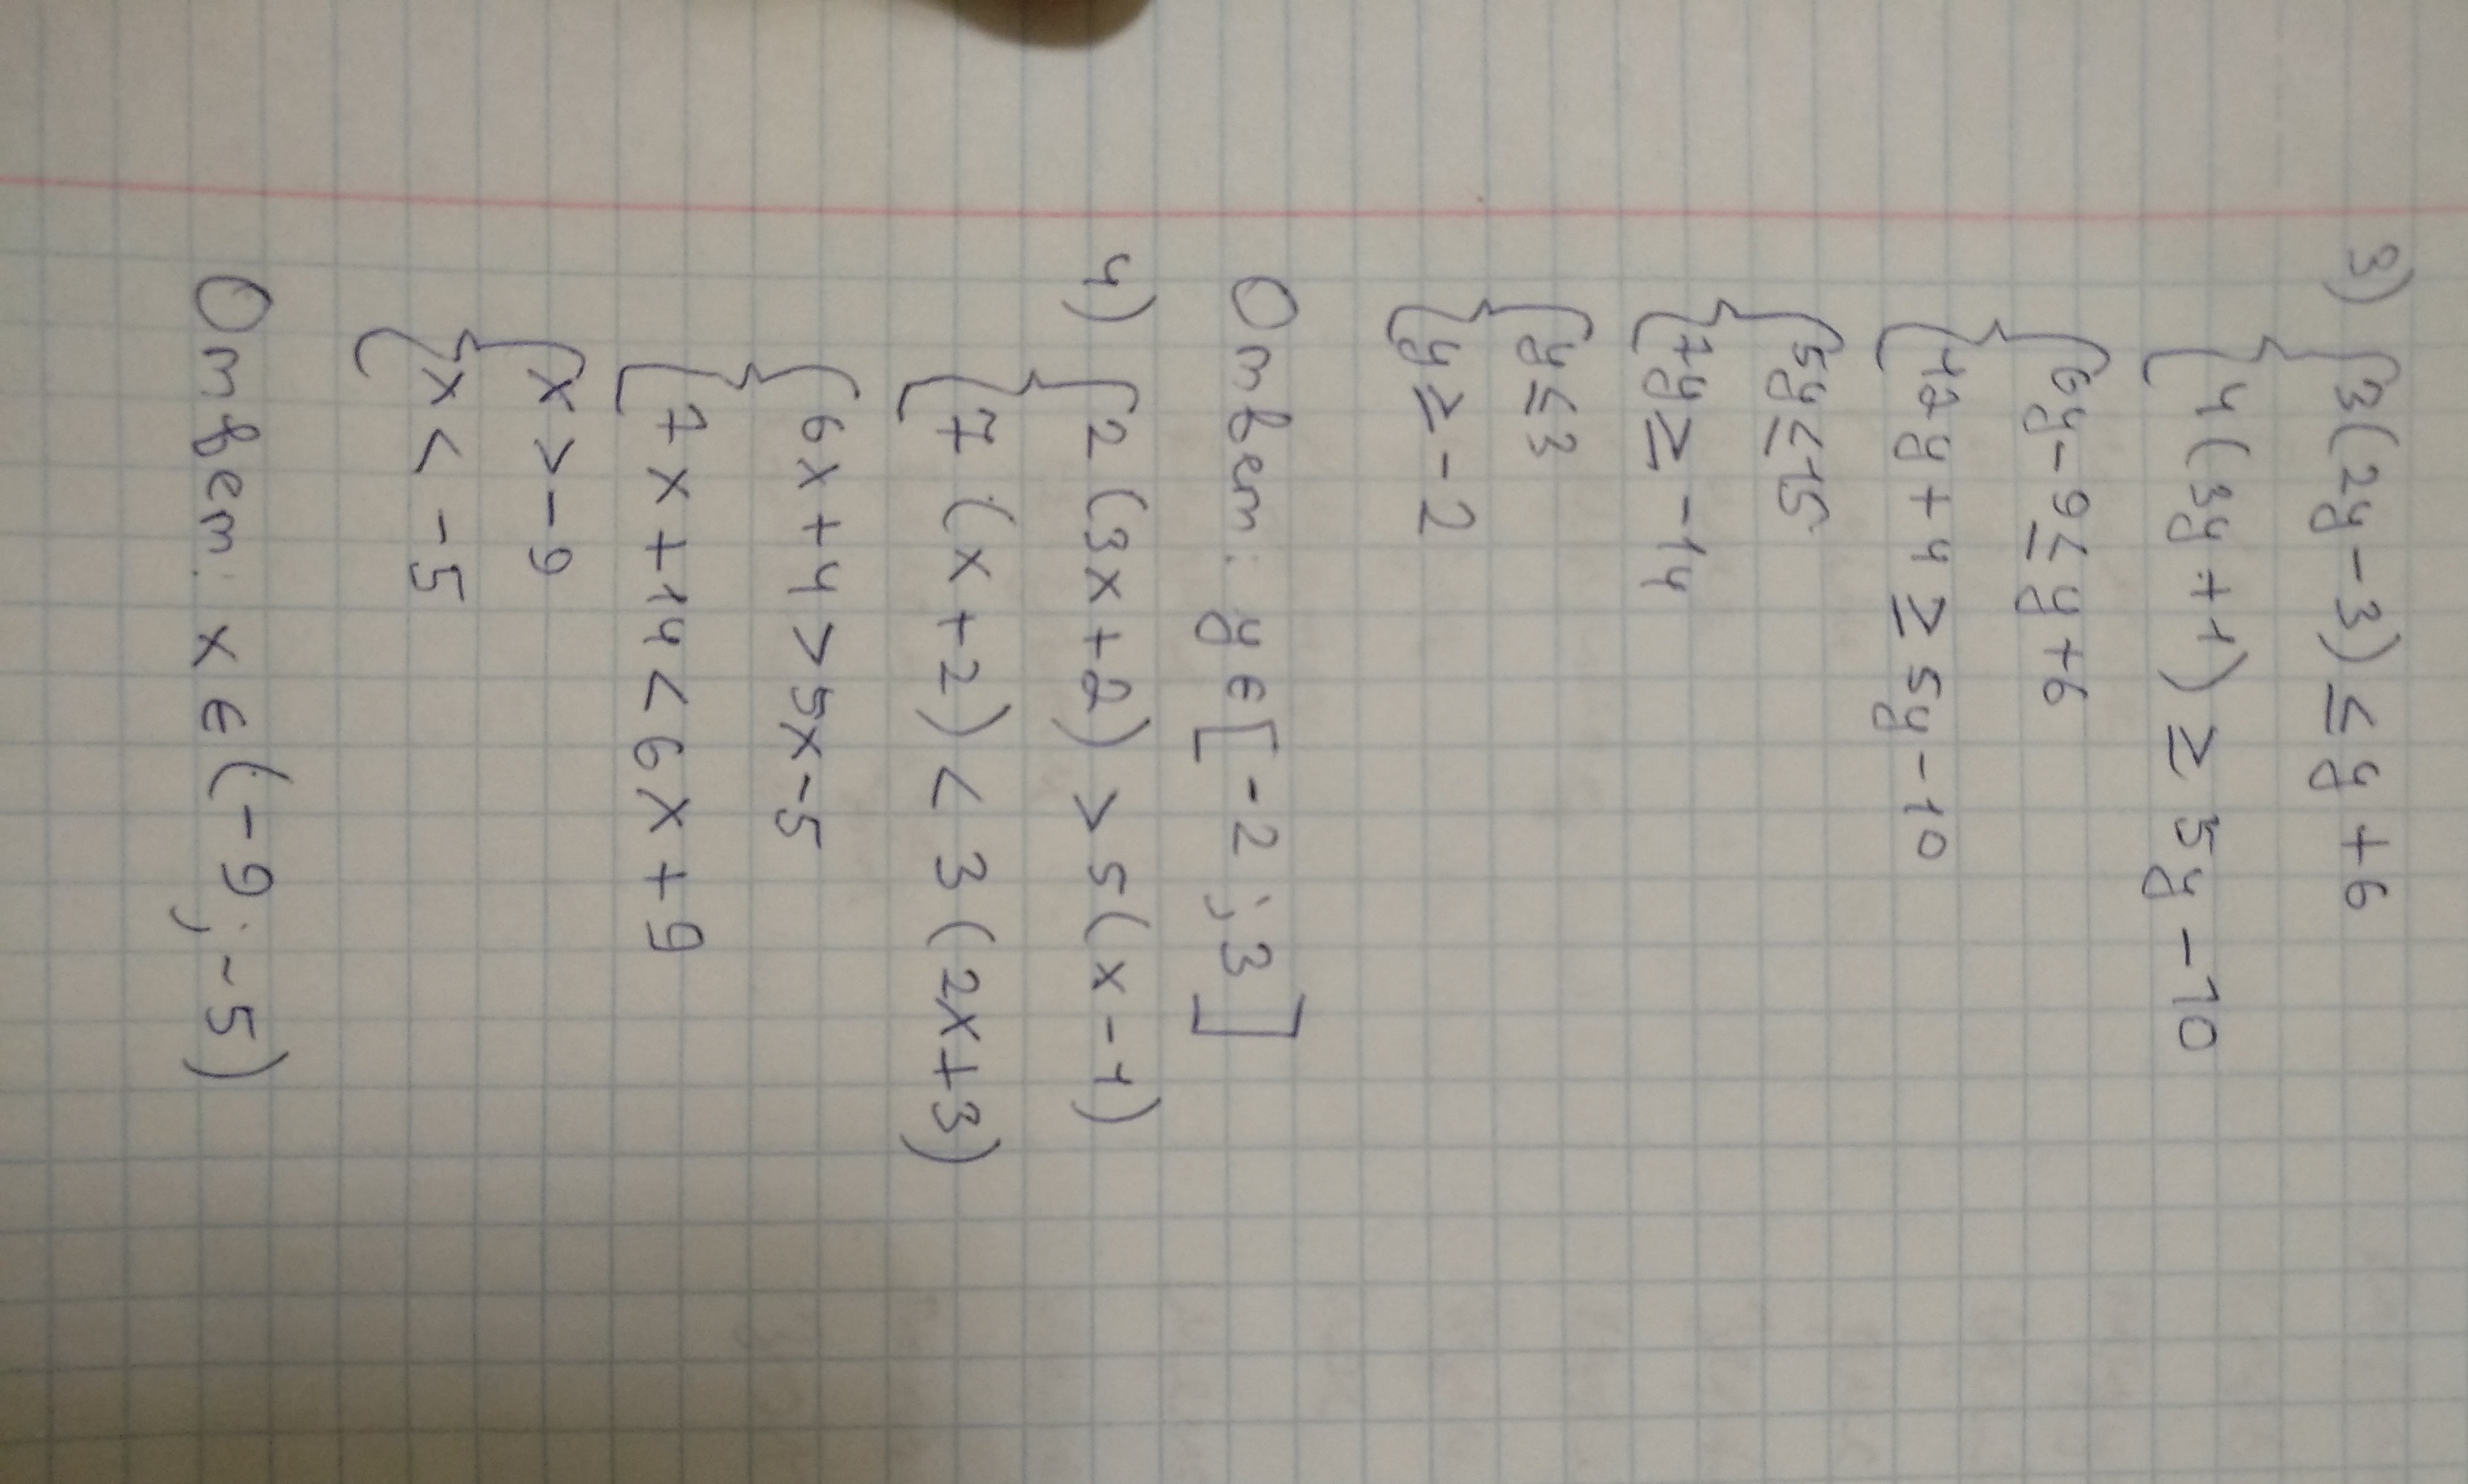 3) { 3(2y-3) ≤ y+6
{ 4(3y+1) ≥ 5y-10
{ 6y-9 ≤ y+6
{ 12y+4 ≥ 5y-10
{ 5y ≤ 15
{ 7y ≥ -14
{ y ≤ 3
{ y ≥ -2
Ответ: y ∈ [-2; 3]
4) { 2(3x+2) > 5(x-1)
{ 7(x+2) < 3(2x+3)
{ 6x+4 > 5x-5
{ 7x+14 < 6x+9
{ x > -9
{ x < -5
Ответ: x ∈ (-9; -5)